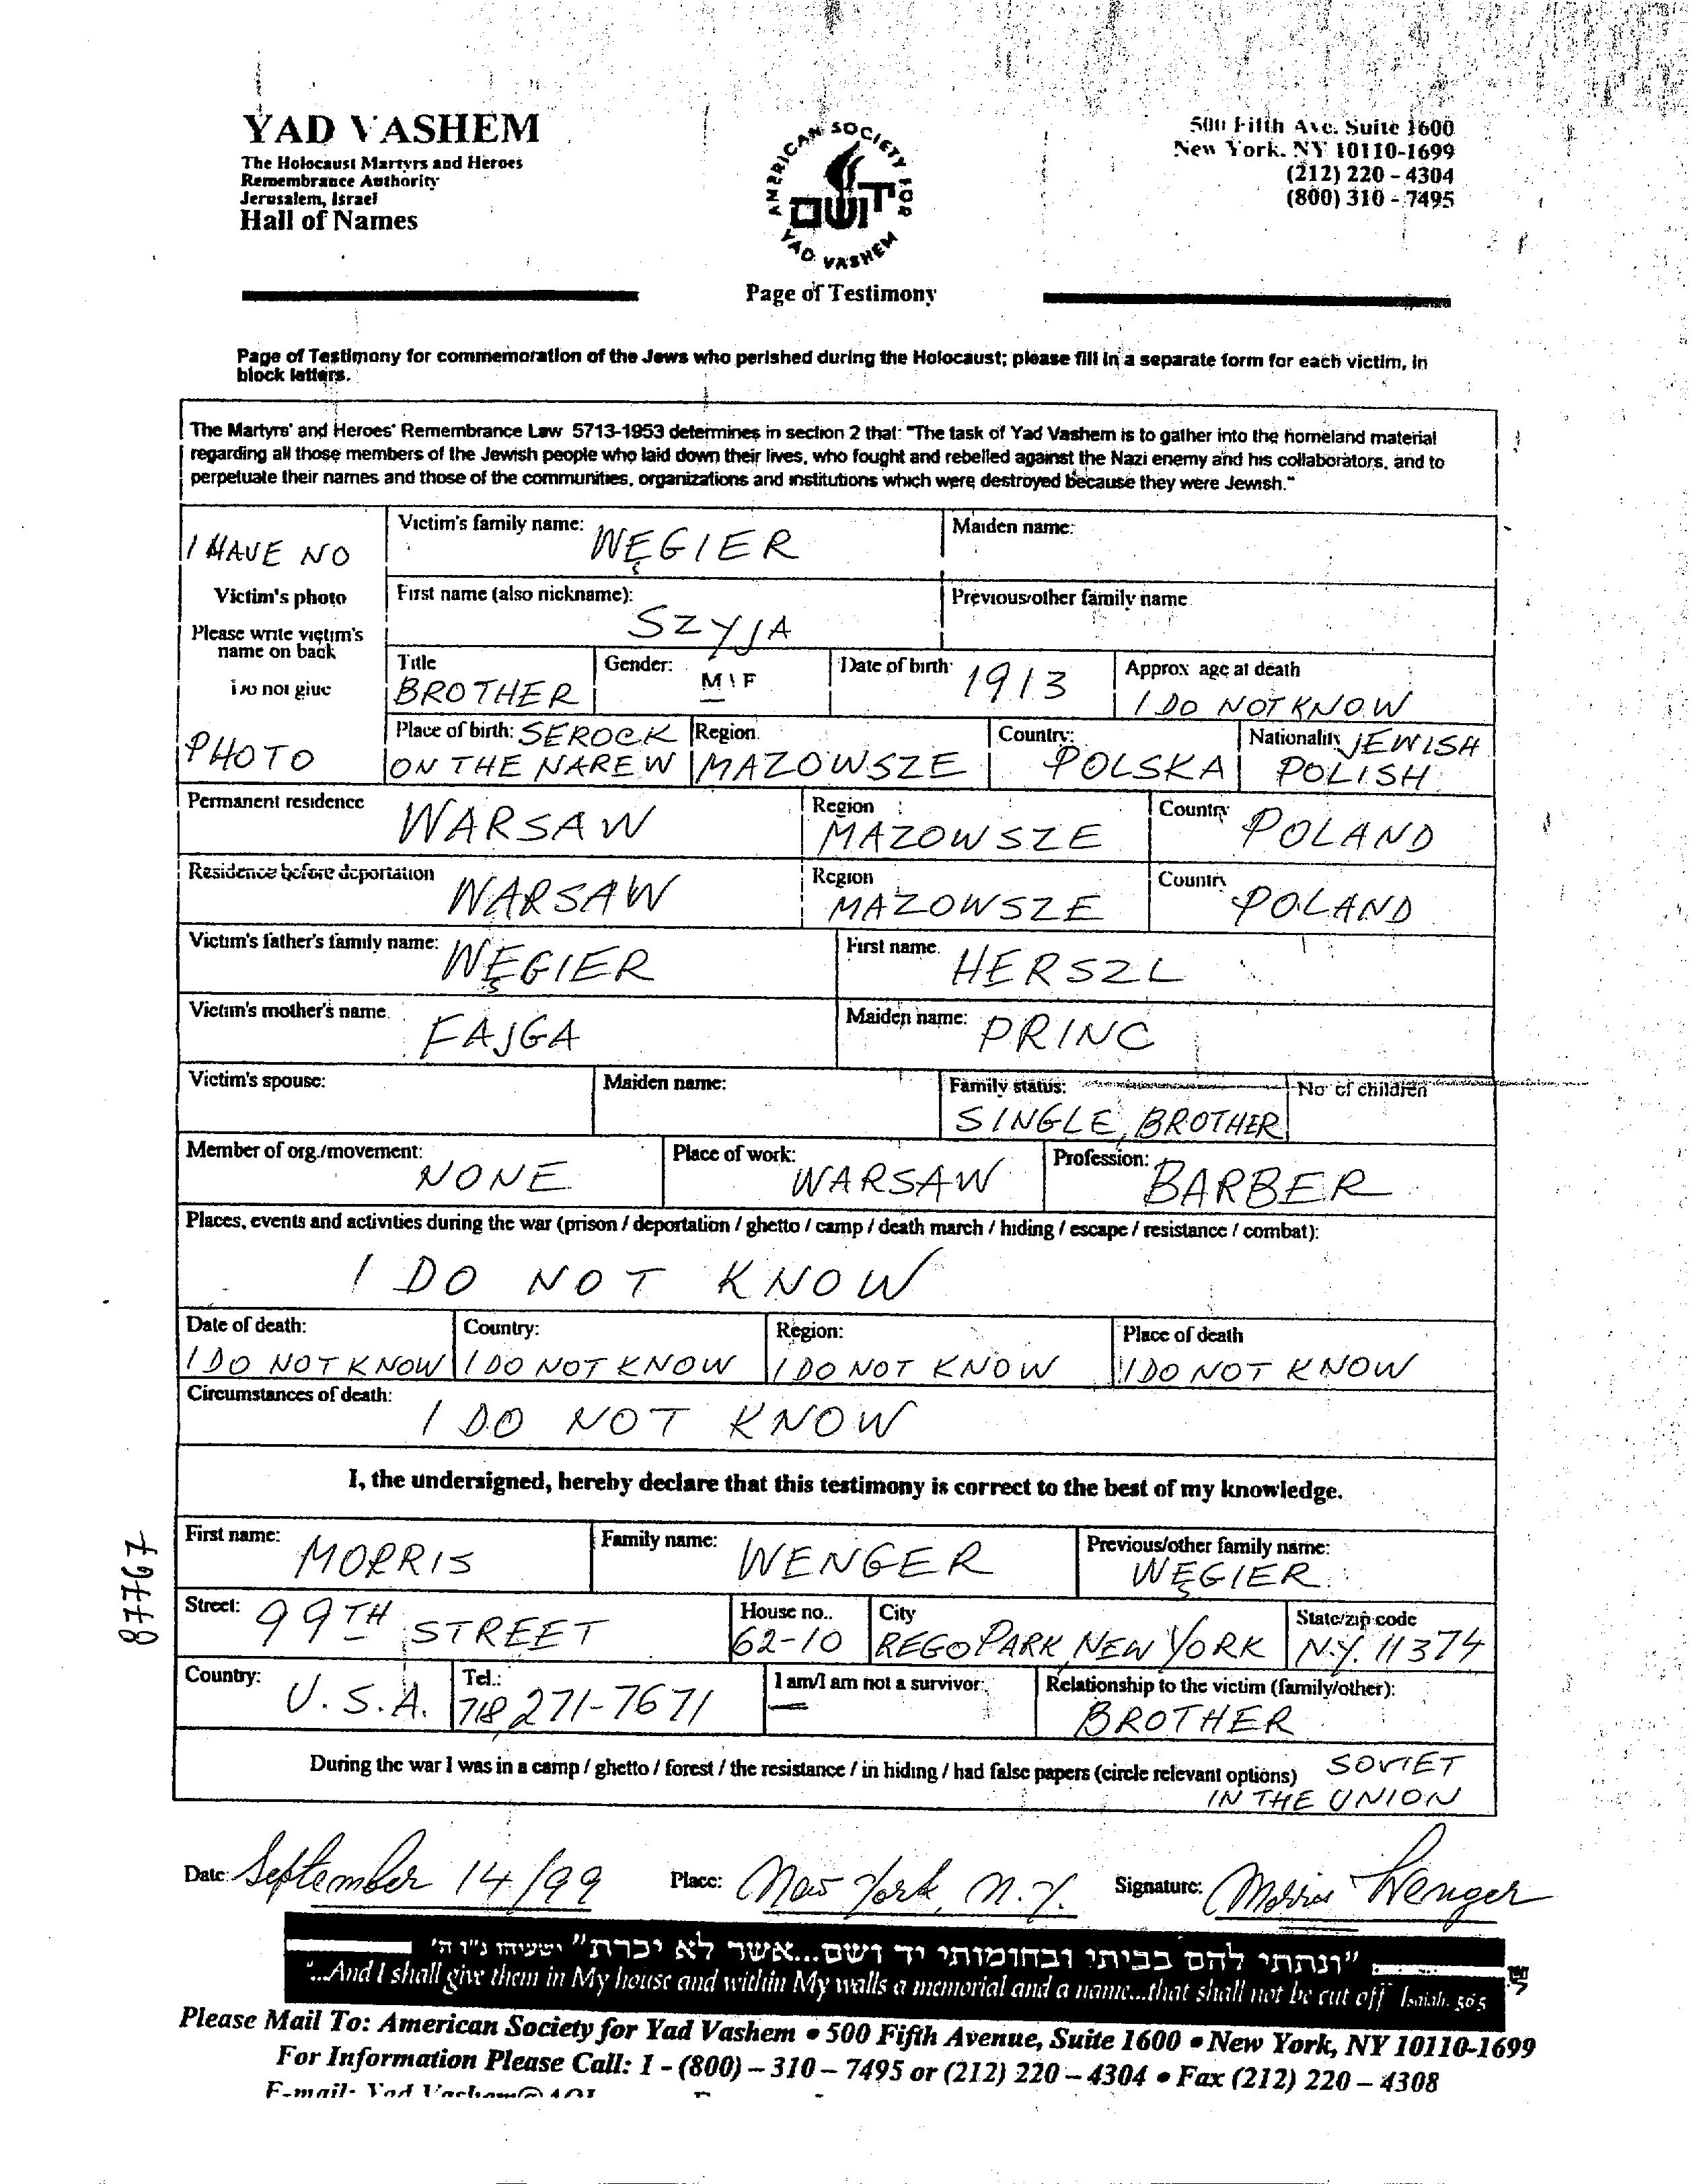 YAD VASHEM
The Holocaust Martyrs and Heroes
Remembrance Authority
Jerusalem, Israel
Hall of Names
AMERICAN SOCIETY FOR
יד ושם
YAD VASHEM
Page of Testimony
500 Fifth Ave. Suite 1600
New York. NY 10110-1699
(212) 220 - 4304
(800) 310 - 7495
Page of Testimony for commemoration of the Jews who perished during the Holocaust; please fill in a separate form for each victim, in
block letters.
The Martyrs' and Heroes' Remembrance Law 5713-1953 determines in section 2 that: "The task of Yad Vashem is to gather into the homeland material
regarding all those members of the Jewish people who laid down their lives, who fought and rebelled against the Nazi enemy and his collaborators, and to
perpetuate their names and those of the communities, organizations and institutions which were destroyed because they were Jewish."
I HAVE NO
Victim's photo
Please write victim's
name on back
Do not glue
PHOTO
Victim's family name: WĘGIER
Maiden name:
First name (also nickname): SZYJA
Previous/other family name
Title BROTHER
Gender: M \ F
Date of birth: 1913
Approx age at death
I DO NOT KNOW
Place of birth: SEROCK
ON THE NAREW
Region MAZOWSZE
Country: POLSKA
Nationality JEWISH
POLISH
Permanent residence WARSAW
Region MAZOWSZE
Country POLAND
Residence before deportation WARSAW
Region MAZOWSZE
Country POLAND
Victim's father's family name: WĘGIER
First name. HERSZL
Victim's mother's name FAJGA
Maiden name: PRINC
Victim's spouse:
Maiden name:
Family status: SINGLE, BROTHER
No of children
Member of org./movement: NONE
Place of work: WARSAW
Profession: BARBER
Places, events and activities during the war (prison / deportation / ghetto / camp / death march / hiding / escape / resistance / combat):
I DO NOT KNOW
Date of death: I DO NOT KNOW
Country: I DO NOT KNOW
Region: I DO NOT KNOW
Place of death I DO NOT KNOW
Circumstances of death: I DO NOT KNOW
I, the undersigned, hereby declare that this testimony is correct to the best of my knowledge.
First name: MORRIS
Family name: WENGER
Previous/other family name: WĘGIER
Street: 99TH STREET
House no.. 62-10
City REGO PARK, NEW YORK
State/zip code N.Y. 11374
Country: U.S.A.
Tel.: 718, 271-7671
I am/I am not a survivor:
Relationship to the victim (family/other): BROTHER
During the war I was in a camp / ghetto / forest / the resistance / in hiding / had false papers (circle relevant options) SOVIET
IN THE UNION
87767
Date: September 14/99 Place: New York, N.Y. Signature: Morris Wenger
"ונתתי להם בביתי ובחומותי יד ושם...אשר לא יכרת" ישעיהו נ"ו ה'
"...And I shall give them in My house and within My walls a memorial and a name...that shall not be cut off Isaiah. 56 5
Please Mail To: American Society for Yad Vashem • 500 Fifth Avenue, Suite 1600 • New York, NY 10110-1699
For Information Please Call: 1 - (800) – 310 – 7495 or (212) 220 – 4304 • Fax (212) 220 – 4308